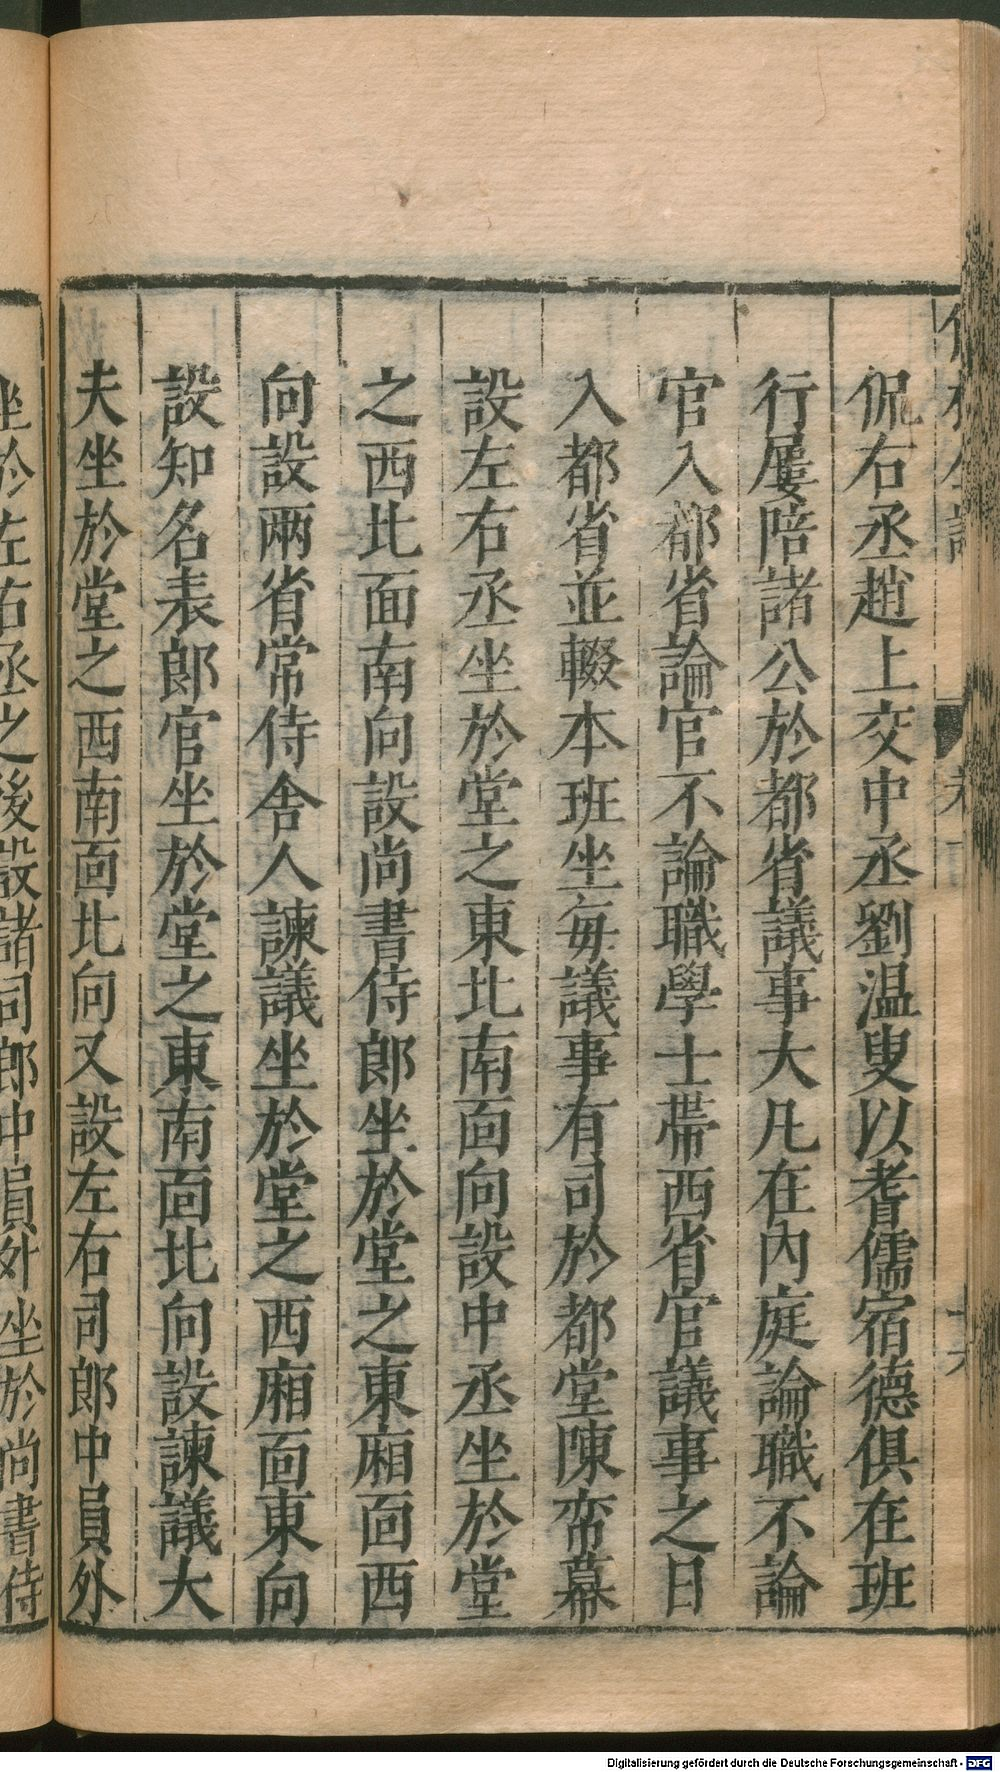 侃右丞趙上交中丞劉温叟以耆儒宿德俱在班
行屢陪諸公於都省議事大凡在內庭論職不論
官入都省論官不論職學士帶西省官議事之日
入都省並輟本班坐每議事有司於都堂陳帟幕
設左右丞坐於堂之東北南靣向設中丞坐於堂
之西北面南向設尚書侍郎坐於堂之東廂靣西
向設兩省常侍舍人諫議坐於堂之西廂靣東向
設知名表郎官坐於堂之東南靣北向設諫議大
夫坐於堂之西南靣北向又設左右司郎中員外
坐於左右丞之後設諸司郎中員外坐於尚書侍
Digitalisierung gefördert durch die Deutsche Forschungsgemeinschaft - DFG